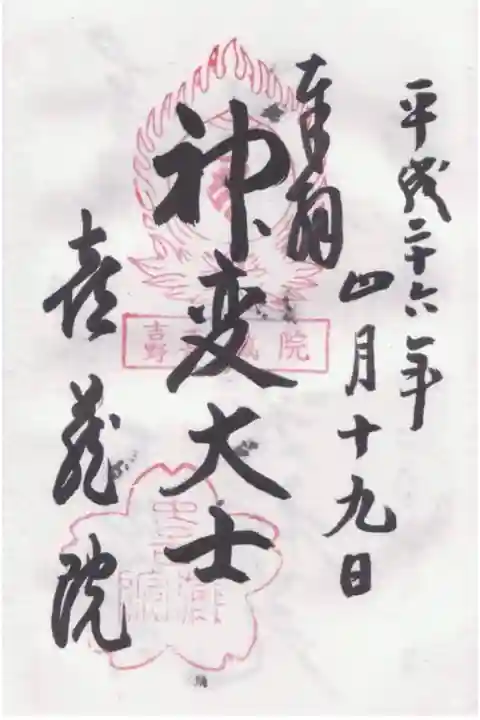 平成二十六年
四月十九日
奉拝
神変大士
喜蔵院
吉野 喜蔵院